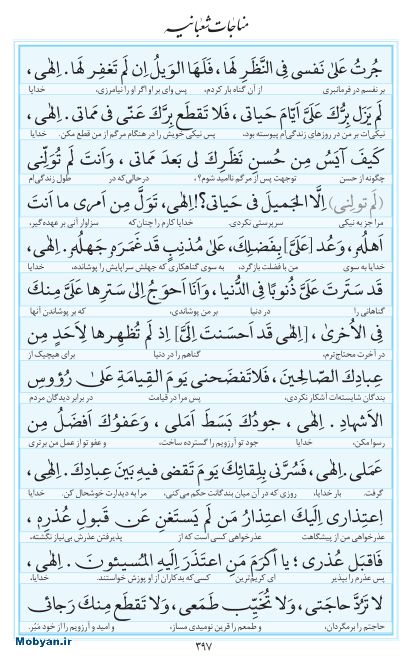 مناجات شعبانیه
جُرتُ عَلىٰ نَفسى فِى النَّظَرِ لَها، فَلَهَا الوَيلُ اِن لَم تَغفِر لَها. اِلهى،
بر نفسم در فرمانبری از آن گناه بار کردم، پس وای بر او اگر او را نیامرزی، خدایا
لَم يَزَل بِرُّكَ عَلَىَّ اَيّامَ حَياتى، فَلا تَقطَع بِرَّكَ عَنّى فى مَماتى. اِلهى،
نیکی‌ات بر من در روزهای زندگی‌ام پیوسته بود، پس نیکی خویش را در هنگام مرگم از من قطع مکن. خدایا
كَيفَ آيَسُ مِن حُسنِ نَظَرِكَ لى بَعدَ مَماتى، وَاَنتَ لَم تُوَلِّنى
چگونه از حسن توجهت پس از مرگم ناامید شوم؟، درحالی‌که در طول زندگی‌ام
(لَم تولنی) اِلَّا الجَميلَ فى حَياتى؟! اِلهى، تَوَلَّ مِن اَمرى ما اَنتَ
مرا جز به نیکی سرپرستی نکردی. خدایا کارم را چنان که سزاوار آنی بر عهده گیر،
اَهلُهُ، وَعُد [عَلَىَّ] بِفَضلِكَ، عَلىٰ مُذنِبٍ قَد غَمَرَهُ جَهلُهُ. اِلهى،
خدایا به سوی من با فضلت بازگرد، به سوی گناهکاری که جهلش سراپایش را پوشانده، خدایا
قَد سَتَرتَ عَلَىَّ ذُنوبًا فِى الدُّنيا، وَاَنَا اَحوَجُ اِلىٰ سَترِها عَلَىَّ مِنكَ
گناهانی را در دنیا بر من پوشاندی، که بر پوشاندن آنها
فِى الاُخرىٰ، [اِلهى قَد اَحسَنتَ اِلَىَّ] اِذ لَم تُظهِرها لِاَحَدٍ مِن
در آخرت محتاج‌ترم، گناهم را در دنیا برای هیچیک از
عِبادِكَ الصّالِحينَ، فَلا تَفضَحنى يَومَ القِيامَةِ عَلىٰ رُؤُوسِ
بندگان شایسته‌ات آشکار نکردی، پس مرا در قیامت در برابر دیدگان مردم
الاَشهادِ. اِلهى، جودُكَ بَسَطَ اَمَلى، وَعَفوُكَ اَفضَلُ مِن
رسوا مکن، خدایا، جود تو آرزویم را گسترده ساخت، و عفو تو از عمل من برتری
عَمَلى. اِلهى، فَسُرَّنى بِلِقائِكَ يَومَ تَقضى فيهِ بَينَ عِبادِكَ. اِلهى،
گرفت. بار خدایا، روزی که در آن میان بندگانت حکم می‌کنی، مرا به دیدارت خوشحال کن. خدایا
اِعتِذارى اِلَيكَ اعتِذارُ مَن لَم يَستَغنِ عَن قَبولِ عُذرِهِ،
عذرخواهی من از پیشگاهت عذرخواهی کسی است که از پذیرفتن عذرش بی‌نیاز نگشته،
فَاقبَل عُذرى؛ يا اَكرَمَ مَنِ اعتَذَرَ اِلَيهِ المُسيئونَ. اِلهى،
پس عذرم را بپذیر ای کریم‌ترین کسی‌که بدکاران از او پوزش خواستند. خدایا،
لا تَرُدَّ حاجَتى، وَلا تُخَيِّب طَمَعى، وَلا تَقطَع مِنكَ رَجائى
حاجتم را برمگردان، و طمعم را قرین نومیدی مساز، و امید و آرزویم را از خود مَبُر.
Mobyan.ir
۳۹۷